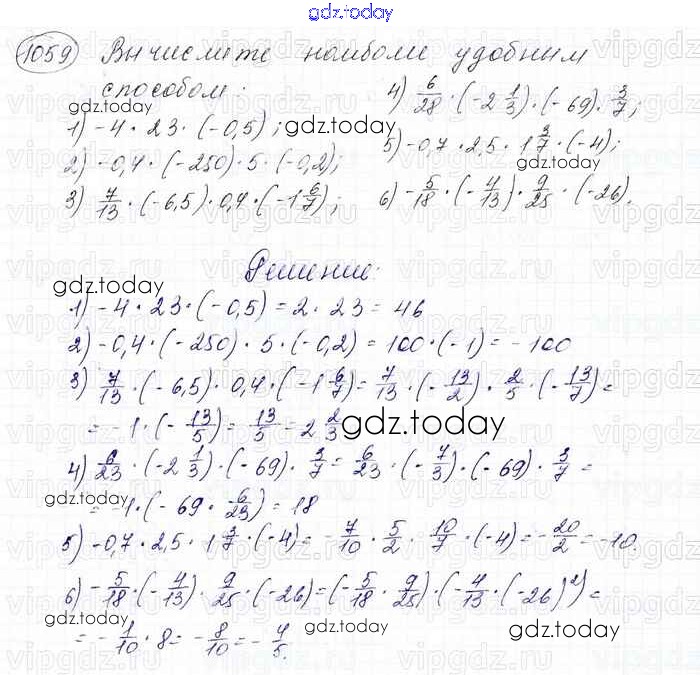 gdz.today
1059 Вычислите наиболее удобным
способом:
gdz.today
1) -4 · 23 · (-0,5); gdz.today
2) -0,4 · (-250) · 5 · (-0,2);
3) 7/13 · (-6,5) · 0,4 · (-1 6/7);
4) 6/23 · (-2 1/3) · (-69) · 3/7;
5) -0,7 · 2,5 · 1 3/7 · (-4);
gdz.today
6) -5/18 · (-4/13) · 9/25 · (-26).
Решение:
gdz.today
1) -4 · 23 · (-0,5) = 2 · 23 = 46
2) -0,4 · (-250) · 5 · (-0,2) = 100 · (-1) = -100
3) 7/13 · (-6,5) · 0,4 · (-1 6/7) = 7/13 · (-13/2) · 2/5 · (-13/7) =
= -1 · (-13/5) = 13/5 = 2 2/3 gdz.today
4) 6/23 · (-2 1/3) · (-69) · 3/7 = 6/23 · (-7/3) · (-69) · 3/7 =
gdz.today
= -1 · (-69 · 6/23) = 18
5) -0,7 · 2,5 · 1 3/7 · (-4) = -7/10 · 5/2 · 10/7 · (-4) = -20/2 = -10.
6) -5/18 · (-4/13) · 9/25 · (-26) = (-5/18 · 9/25) · (-4/13 · (-26)²) =
gdz.today
= -1/10 · 8 = -8/10 = -4/5.
gdz.today
gdz.today